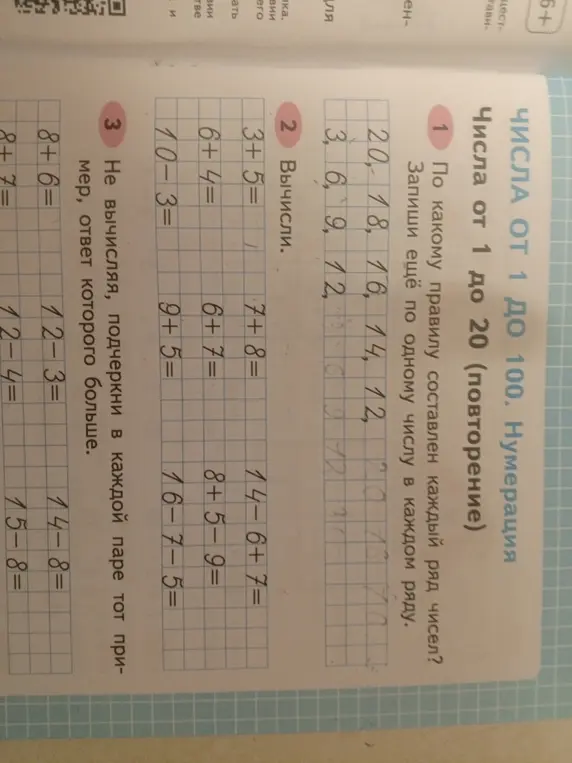 6+
ЧИСЛА ОТ 1 ДО 100. Нумерация
Числа от 1 до 20 (повторение)
1 По какому правилу составлен каждый ряд чисел?
Запиши ещё по одному числу в каждом ряду.
20, 18, 16, 14, 12,
3, 6, 9, 12,
2 Вычисли.
3+5= 7+8= 14-6+7=
6+4= 6+7= 8+5-9=
10-3= 9+5= 16-7-5=
3 Не вычисляя, подчеркни в каждой паре тот при-
мер, ответ которого больше.
8+6= 12-3= 14-8=
8+7= 12-4= 15-8=